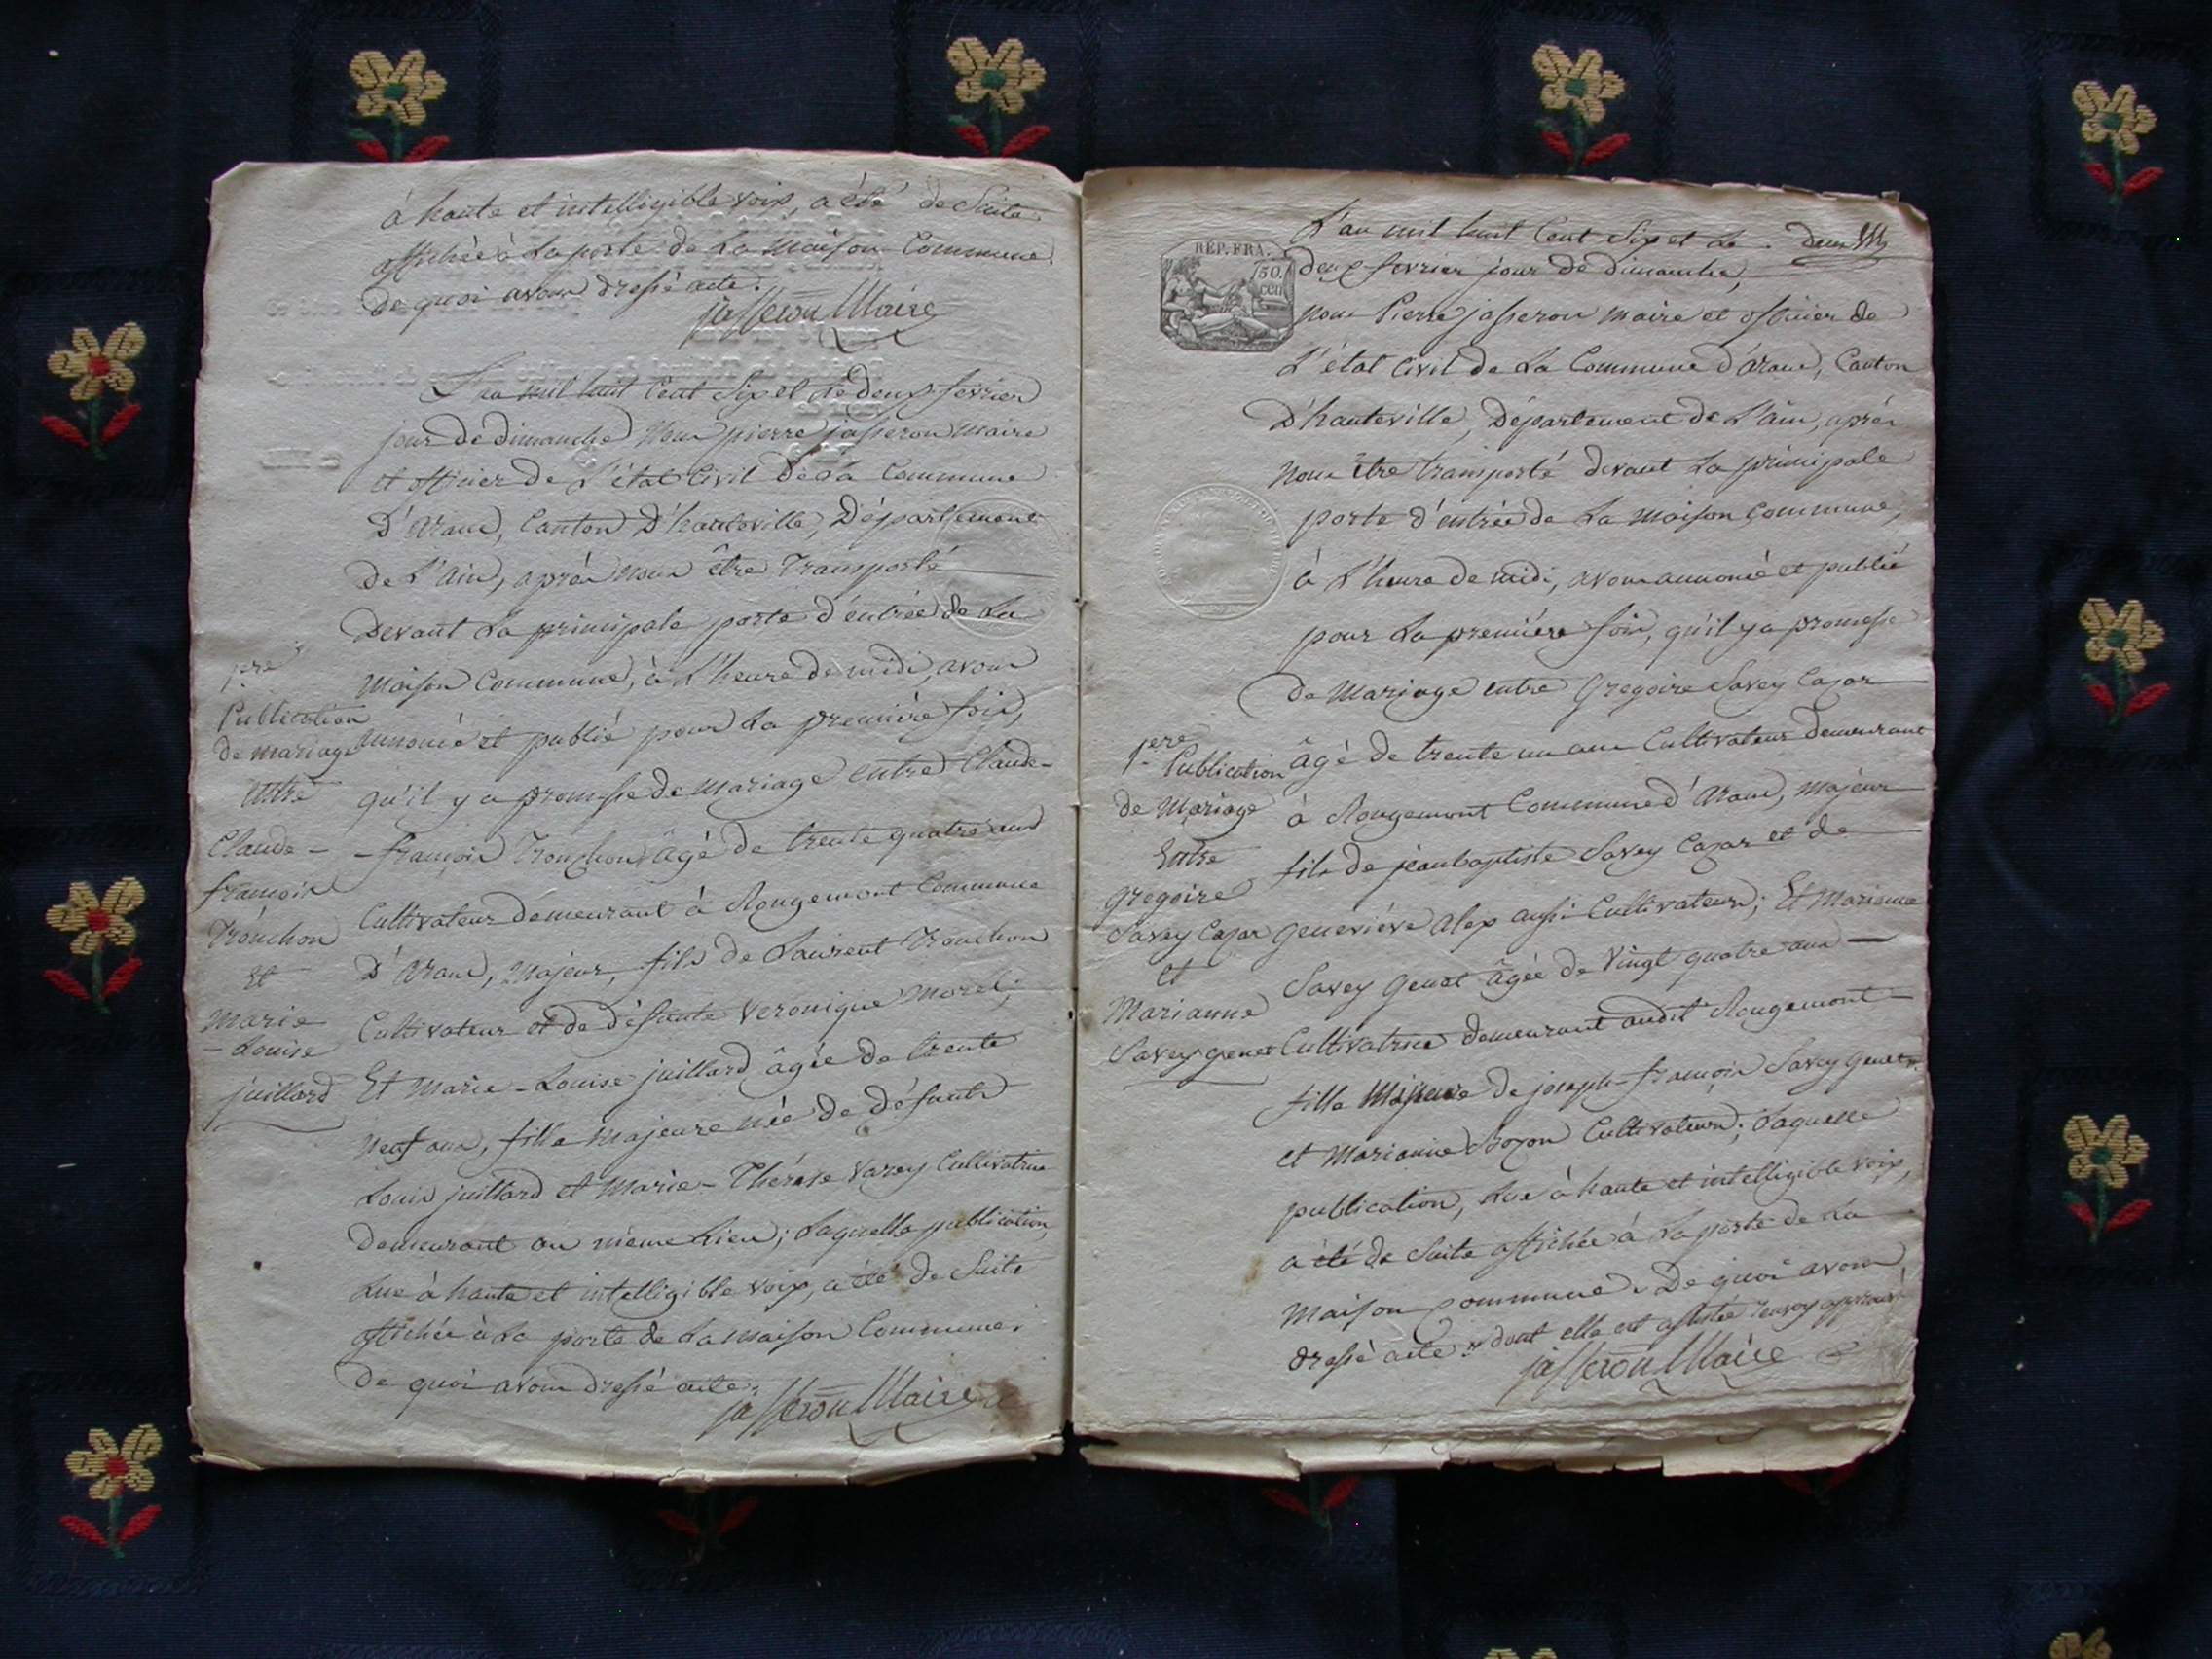 à haute et intelligible voix, a été de Suite
affichée à La porte de La Maison Commune.
De quoi avons dressé acte.
jasseron Maire
L'an mil huit Cent Six et le deux fevrier
jour de dimanche Nous pierre jasseron Maire
et officier de L'état Civil de La Commune
D'aranc, Canton D'hauteville, Département
De L'ain, après nous être Transporté
Devant La principale porte d'entrée de La
Maison Commune, à L'heure de midi, avons
annoncé et publié pour La première fois,
qu'il y a promesse de Mariage entre Claude-
-françois Tronchon âgé de trente quatre ans
Cultivateur demeurant à Rougemont Commune
D'aranc, Majeur, fils de Laurent Tronchon
Cultivateur et de défunte Veronique Morel;
Et Marie-Louise juillard âgée de trente
Neuf ans, fille majeure née de défunts
Louis juillard et Marie-Thérèse Varey Cultivatrice
Demeurant au même Lieu; Laquelle publication,
Lue à haute et intelligible voix, a été de Suite
affichée à La porte de La Maison Commune.
De quoi avons dressé acte.
jasseron Maire
1re
Publication
de mariage
entre
Claude-
françois
Tronchon
Et
Marie
-Louise
juillard
RÉP.FRA.
50.
cen
L'an mil huit Cent Six et Le deux
deux fevrier jour de dimanche,
Nous Pierre jasseron Maire et officier de
L'état Civil de La Commune d'aranc, Canton
D'hauteville, Département de L'ain, après
Nous être transporté devant La principale
porte d'entrée de La Maison Commune,
à L'heure de midi, avons annoncé et publié
pour La première fois, qu'il y a promesse
de Mariage entre Gregoire Savey Casar
âgé de trente un ans Cultivateur demeurant
à Rougemont Commune d'aranc, Majeur
fils de jean baptiste Savey Casar et de
geneviève alex aussi Cultivateurs; Et Marianne
Savey Genet âgée de Vingt quatre ans
Cultivatrice demeurant audit Rougemont
fille Majeure de joseph-françois Savey Genet
et Marianne Cultivateurs; Laquelle
publication, Lue à haute et intelligible voix,
a été de Suite affichée à La porte de La
Maison Commune. De quoi avons
dressé acte. dont elle est assistée renvoy approuvé
jasseron Maire
1ere
Publication
de Mariage
Entre
gregoire
Savey Casar
et
Marianne
Savey genet